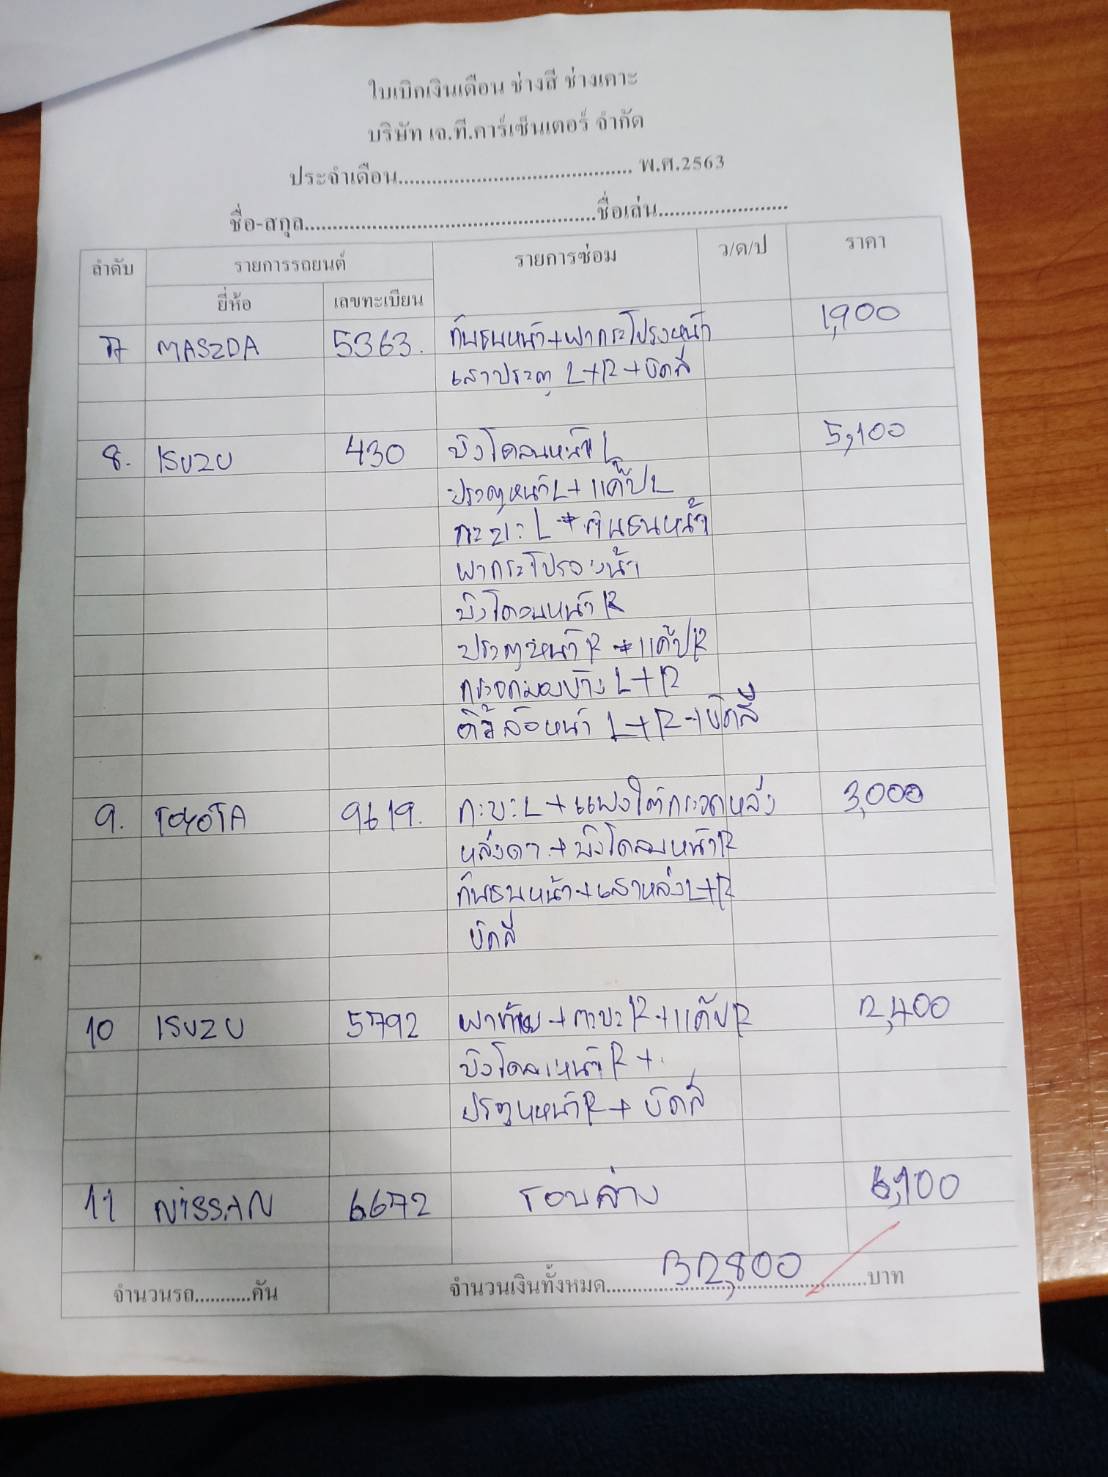 ใบเบิกเงินเดือน ช่างสี ช่างเคาะ
บริษัท เจ.ที.คาร์เซ็นเตอร์ จำกัด
ประจำเดือน.......................................... พ.ศ.2563
ชื่อ-สกุล....................................................ชื่อเล่น.......................
ลำดับ รายการรถยนต์ รายการซ่อม ว/ด/ป ราคา
ยี่ห้อ เลขทะเบียน
7 MASZDA 5363. กันชนหน้า+ฝากระโปรงหน้า 1,900
เสาประตู L+R+ขัดสี
8. ISUZU 430 บังโคลนหน้า L 5,100
ประตูหน้าL+แค๊ปL
กะบะ L+กันชนหน้า
ฝากระโปรงหน้า
บังโคลนหน้า R
ประตูหน้า R +แค๊ปR
กระจกมองข้าง L+R
คิ้วล้อหน้า L+R+ขัดสี
9. TOYOTA 9619. กะบะL+แผงใต้กระจกหลัง 3,000
หลังคา+บังโคลนหน้าR
กันชนหน้า+เสาหลังL+R
ขัดสี
10 ISUZU 5792 ฝาท้าย+กะบะ R+แค๊ปR 2,400
บังโคลนหน้า R+
ประตูหน้าR+ ขัดสี
11 NISSAN 6672 รอบล่าง 6,100
จำนวนรถ..........คัน จำนวนเงินทั้งหมด..........32,800..........บาท